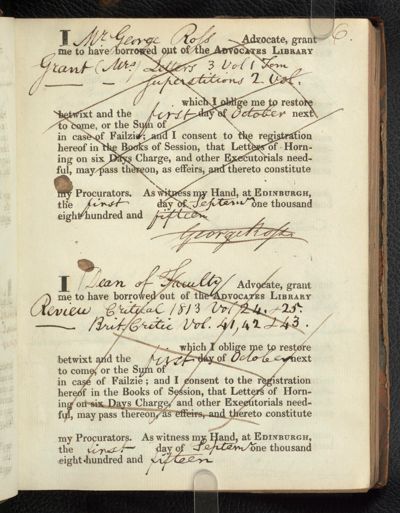 6.
I Mr George Ross Advocate, grant
me to have borrowed out of the Advocates Library
Grant (Mrs) Letters 3 Vol 1 Tom
Superstitions 2. Vol.
which I oblige me to restore
betwixt and the first day of October next
to come, or the Sum of
in case of Failzie; and I consent to the registration
hereof in the Books of Session, that Letters of Horn-
ing on six Days Charge, and other Executorials need-
ful, may pass thereon, as effeirs, and thereto constitute
my Procurators. As witness my Hand, at Edinburgh,
the first day of Septemr one thousand
eight hundred and fifteen
George Ross
I Dean of Faculty Advocate, grant
me to have borrowed out of the Advocates Library
Review Critical 1813 Vol 24. & 25.
Brit. Critic Vol. 41, 42 & 43.
which I oblige me to restore
betwixt and the first day of October next
to come, or the Sum of
in case of Failzie; and I consent to the registration
hereof in the Books of Session, that Letters of Horn-
ing on six Days Charge, and other Executorials need-
ful, may pass thereon, as effeirs, and thereto constitute
my Procurators. As witness my Hand, at Edinburgh,
the first day of Septemr one thousand
eight hundred and fifteen